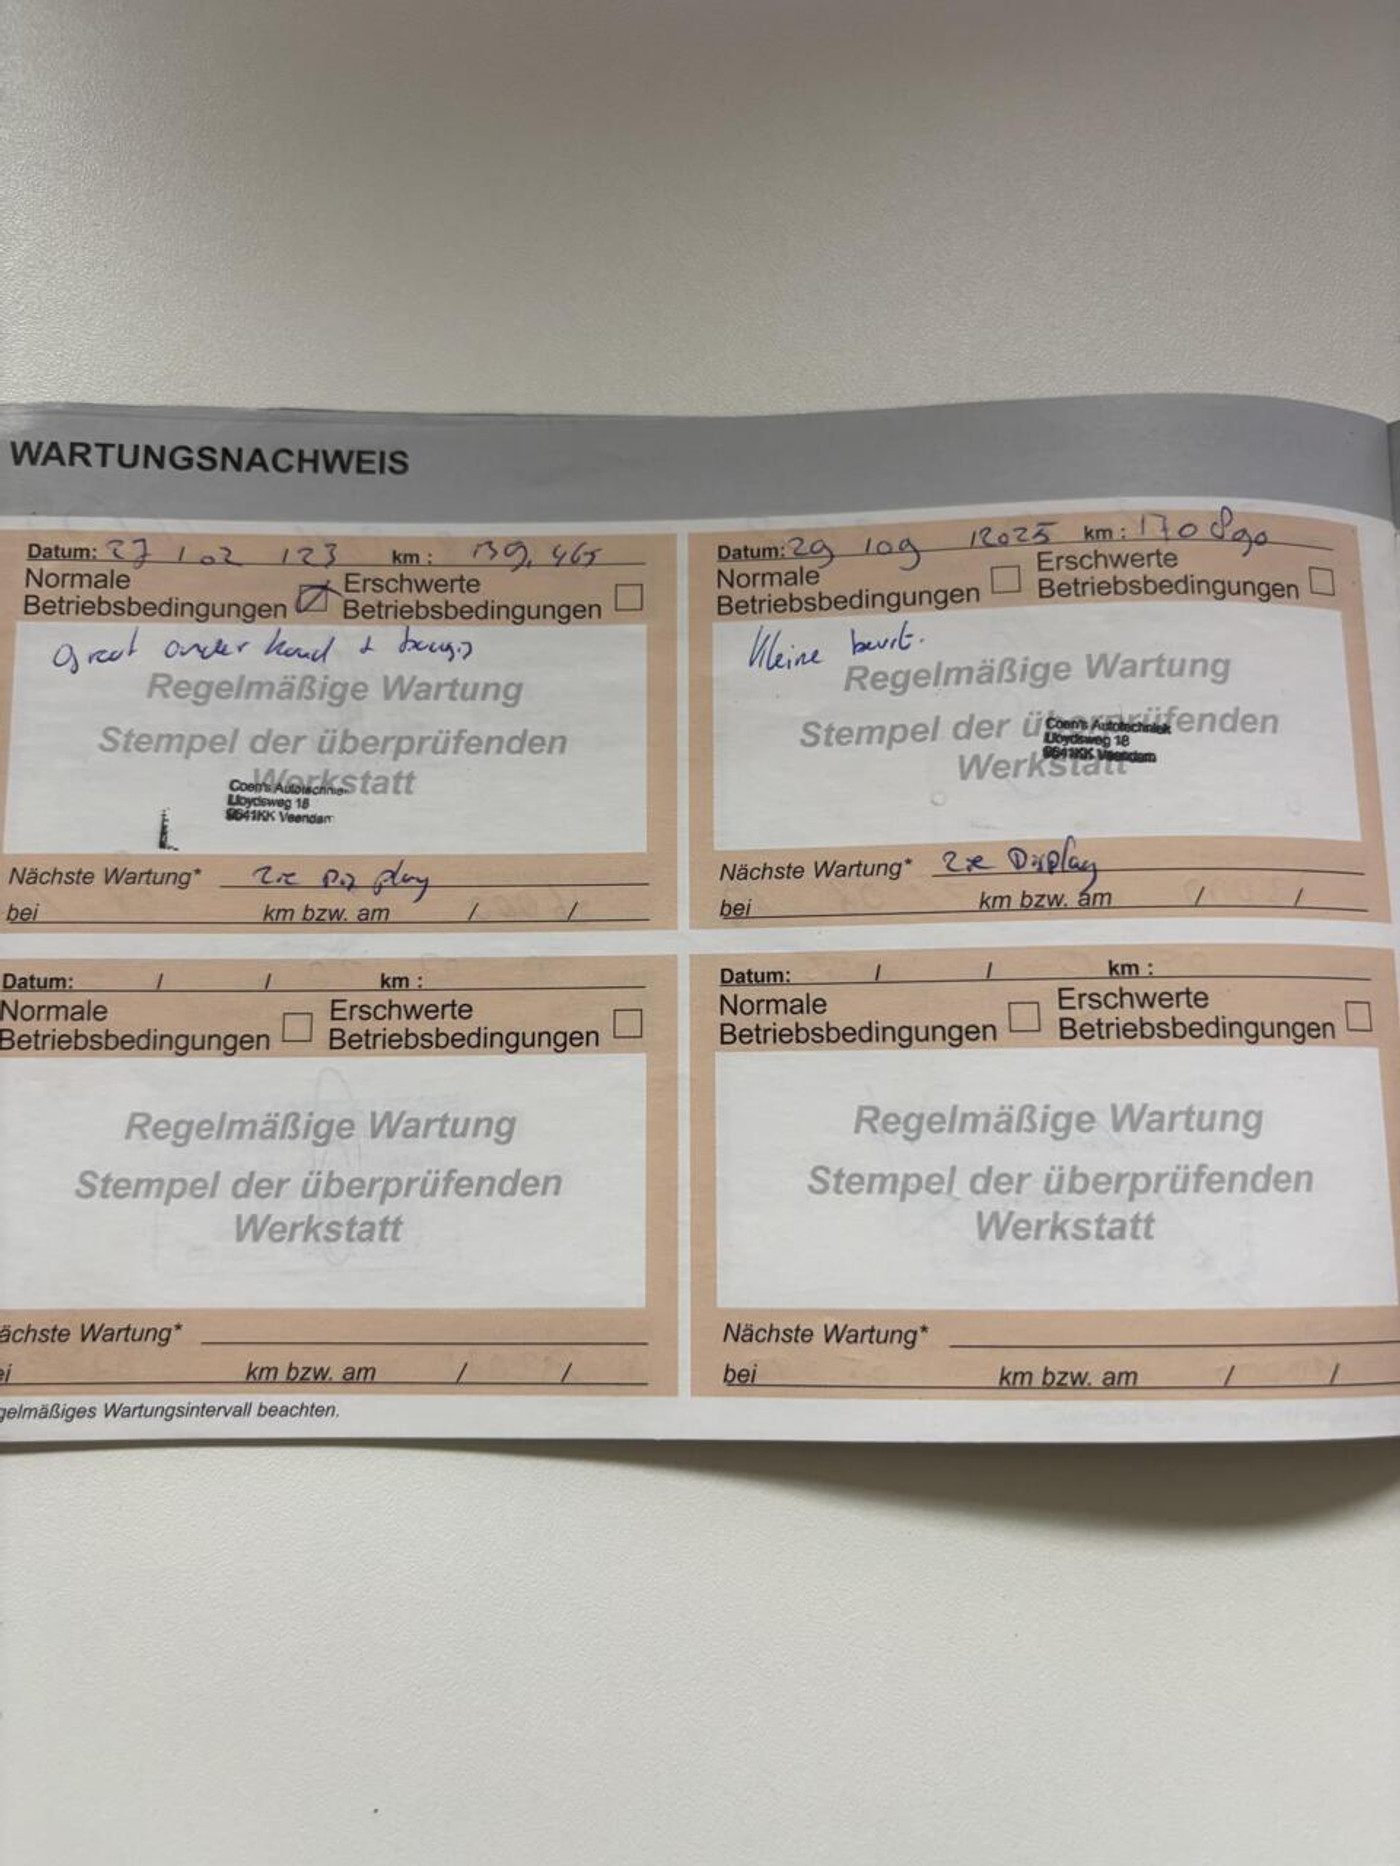 WARTUNGSNACHWEIS
Datum: 27 / 02 / 23 km : 139,465
Normale Betriebsbedingungen Erschwerte Betriebsbedingungen
groot onderhoud +
Regelmäßige Wartung
Stempel der überprüfenden
Werkstatt
Coen's Autotechniek
Lloydsweg 18
9641KK Veendam
Nächste Wartung* zie Display
bei km bzw. am / /
Datum: 29 / 09 / 2025 km : 170890
Normale Betriebsbedingungen Erschwerte Betriebsbedingungen
Kleine beurt.
Regelmäßige Wartung
Stempel der überprüfenden
Werkstatt
Coen's Autotechniek
Lloydsweg 18
9641KK Veendam
Nächste Wartung* zie Display
bei km bzw. am / /
Datum: / / km :
Normale Betriebsbedingungen Erschwerte Betriebsbedingungen
Regelmäßige Wartung
Stempel der überprüfenden
Werkstatt
ächste Wartung*
ei km bzw. am / /
Datum: / / km :
Normale Betriebsbedingungen Erschwerte Betriebsbedingungen
Regelmäßige Wartung
Stempel der überprüfenden
Werkstatt
Nächste Wartung*
bei km bzw. am / /
gelmäßiges Wartungsintervall beachten.